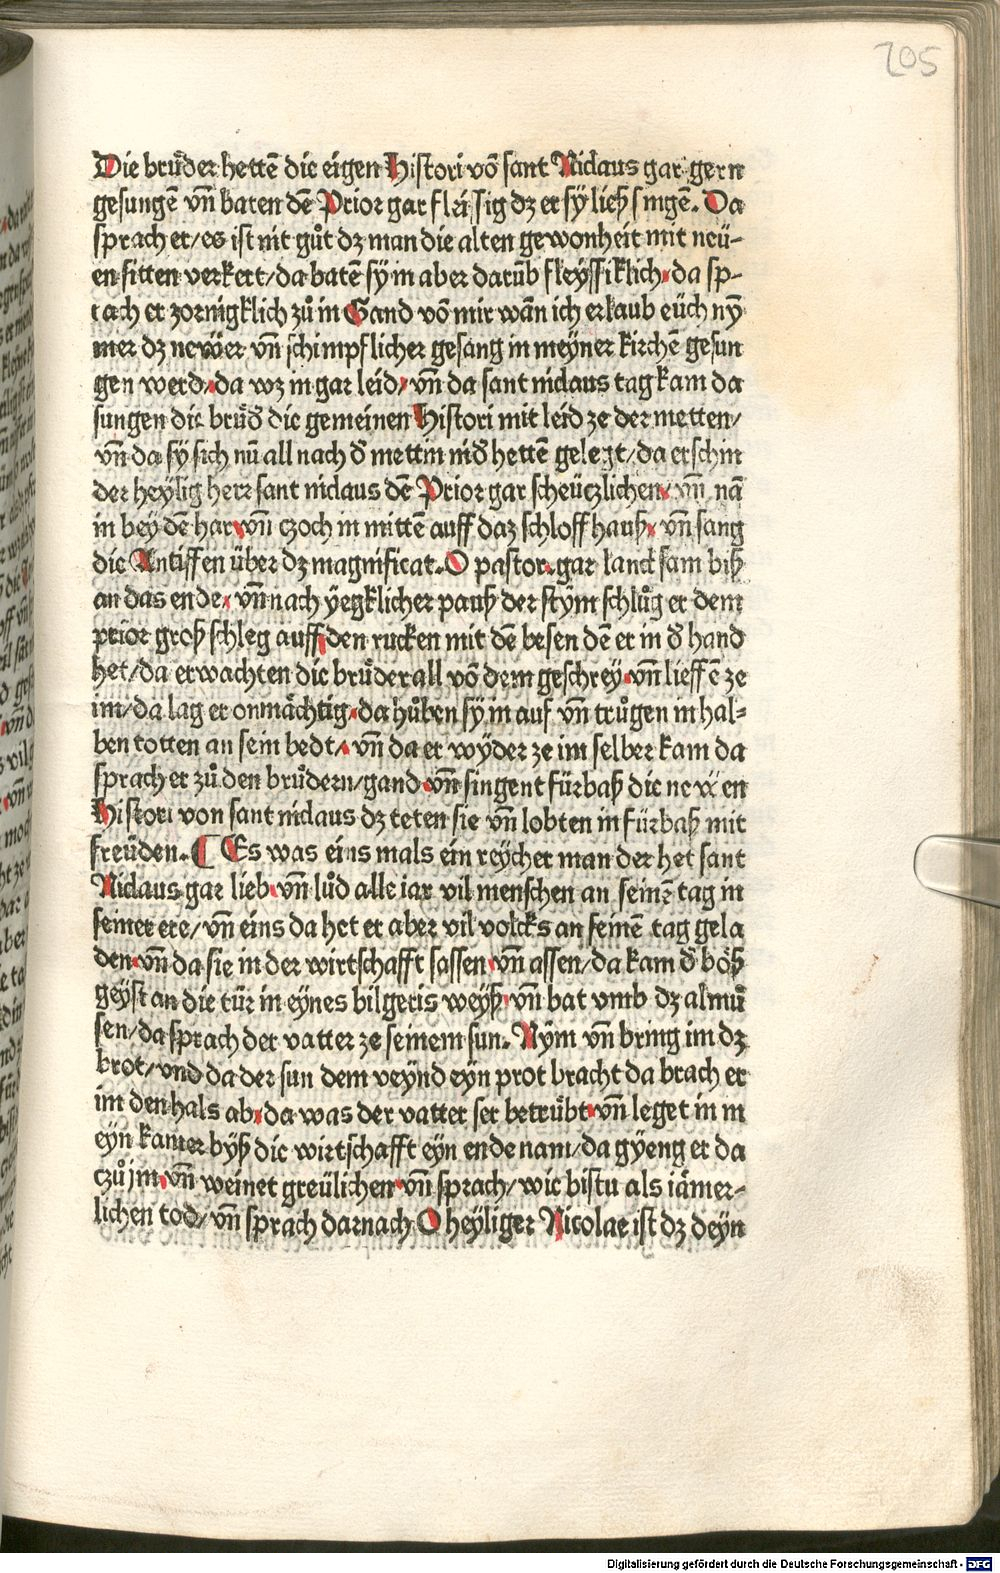 205
Die brůder hettē die eigen Histori vō sant Niclaus gar gern
gesungē vn̄ baten dē Prior gar fleissig dz er sÿ ließ singē. Da
sprach er/es ist nit gůt dz man die alten gewonheit mit neü-
en sitten verkert/da batē sÿ in aber darūb fleyssiklich. da sp-
rach er zornigklich zů in Gand vō mir wān ich erlaub eüch nȳ
mer dz newer vn̄ schimpflicher gesang in meyner kirchē gesun
gen werd. da wz in gar leid. vn̄ da sant niclaus tag kam da
sungen die brůd die gemeinen Histori mit leid ze der metten/
vn̄ da sÿ sich nū all nach d mettin nid hettē gelegt/da erschin
der heylig herr sant niclaus dē Prior gar scheüczlichen. vn̄ nā
in bey dē har. vn̄ czoch in mittē auff daz schloffhauß. vn̄ sang
die Antiffen über dz magnificat. O pastor. gar lanckſam biß
an das ende. vn̄ nach yegklicher pauß der stym schlůg er dem
prior groß schleg auff den rucken mit dē besen dē er in d hand
het/da erwachten die brůder all vō dem geschrey. vn̄ lieffē ze
im/da lag er onmächtig. da hůben sÿ in auf vn̄ trůgen in hal-
ben totten an sein bedt/. vn̄ da er wyder ze im selber kam da
sprach er zů den brůdern/gand. vn̄ singent fürbaß die newen
Histori von sant niclaus dz teten sie vn̄ lobten in fürbaß mit
freüden. Es was eins mals ein reycher man der het sant
Niclaus gar lieb. vn̄ lůd alle iar vil menschen an seinē tag in
seiner ere/vn̄ eins da het er aber vil volcks an seinē tag gela
den. vn̄ da sie in der wirtschafft sassen. vn̄ assen/da kam d böß
geyst an die tür in eynes bilgeris weyß. vn̄ bat vmb dz almů
sen/da sprach der vatter ze seinem sun. Nym vn̄ bring im dz
brot/vnd da der sun dem veynd eyn prot bracht da brach er
im den hals ab. da was der vatter ser betrůbt. vn̄ leget in in
eyn kamer byß die wirtschafft eyn ende nam/da gyeng er da
czů jm. vn̄ weinet greülichen. vn̄ sprach/wie bistu als iämer-
lichen tod/vn̄ sprach darnach O heyliger Nicolae ist dz deyn
Digitalisierung gefördert durch die Deutsche Forschungsgemeinschaft - DFG